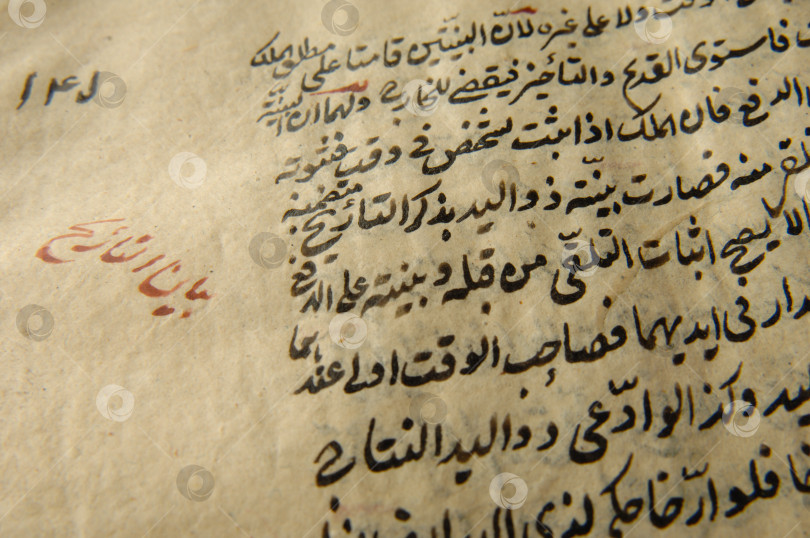 الوقت ولا على غيره لأنّ البينتين قامتا على مطلق الملك
فاستوى القديم والتأخير فيقضى للخارج ولهما ان البينة
الدفع فان الملك اذا ثبت لشخص في وقت فثبوته
منه فصارت بينة ذو اليد بذكر التأريخ متضمنة
الا ليصح اثبات التلقى من قبله وبينته على الدفع
فى ايديهما فصاحب الوقت اولى عندهما
وكذا لو ادّعى ذو اليد النتاج
فلو ارّخا حكم لذى اليد
١٤٨
بيان التأريخ